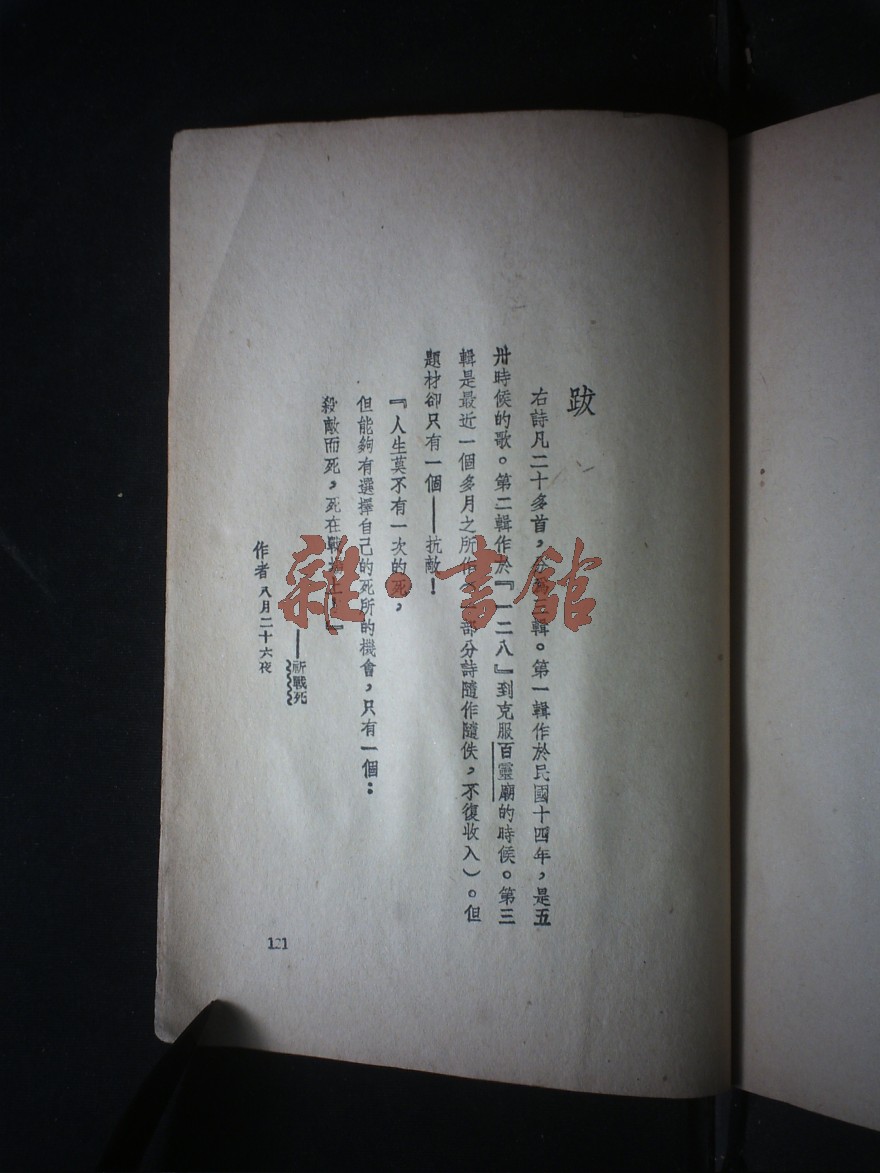 跋
右詩凡二十多首，分爲三輯。第一輯作於民國十四年，是五
卅時候的歌。第二輯作於『一二八』到克服百靈廟的時候。第三
輯是最近一個多月之所作（一部分詩隨作隨佚，不復收入）。但
題材卻只有一個——抗敵！
『人生莫不有一次的死，
但能夠有選擇自己的死所的機會，只有一個：
殺敵而死，死在戰場上！』
——祈戰死
作者 八月二十六夜
121
雜·書館